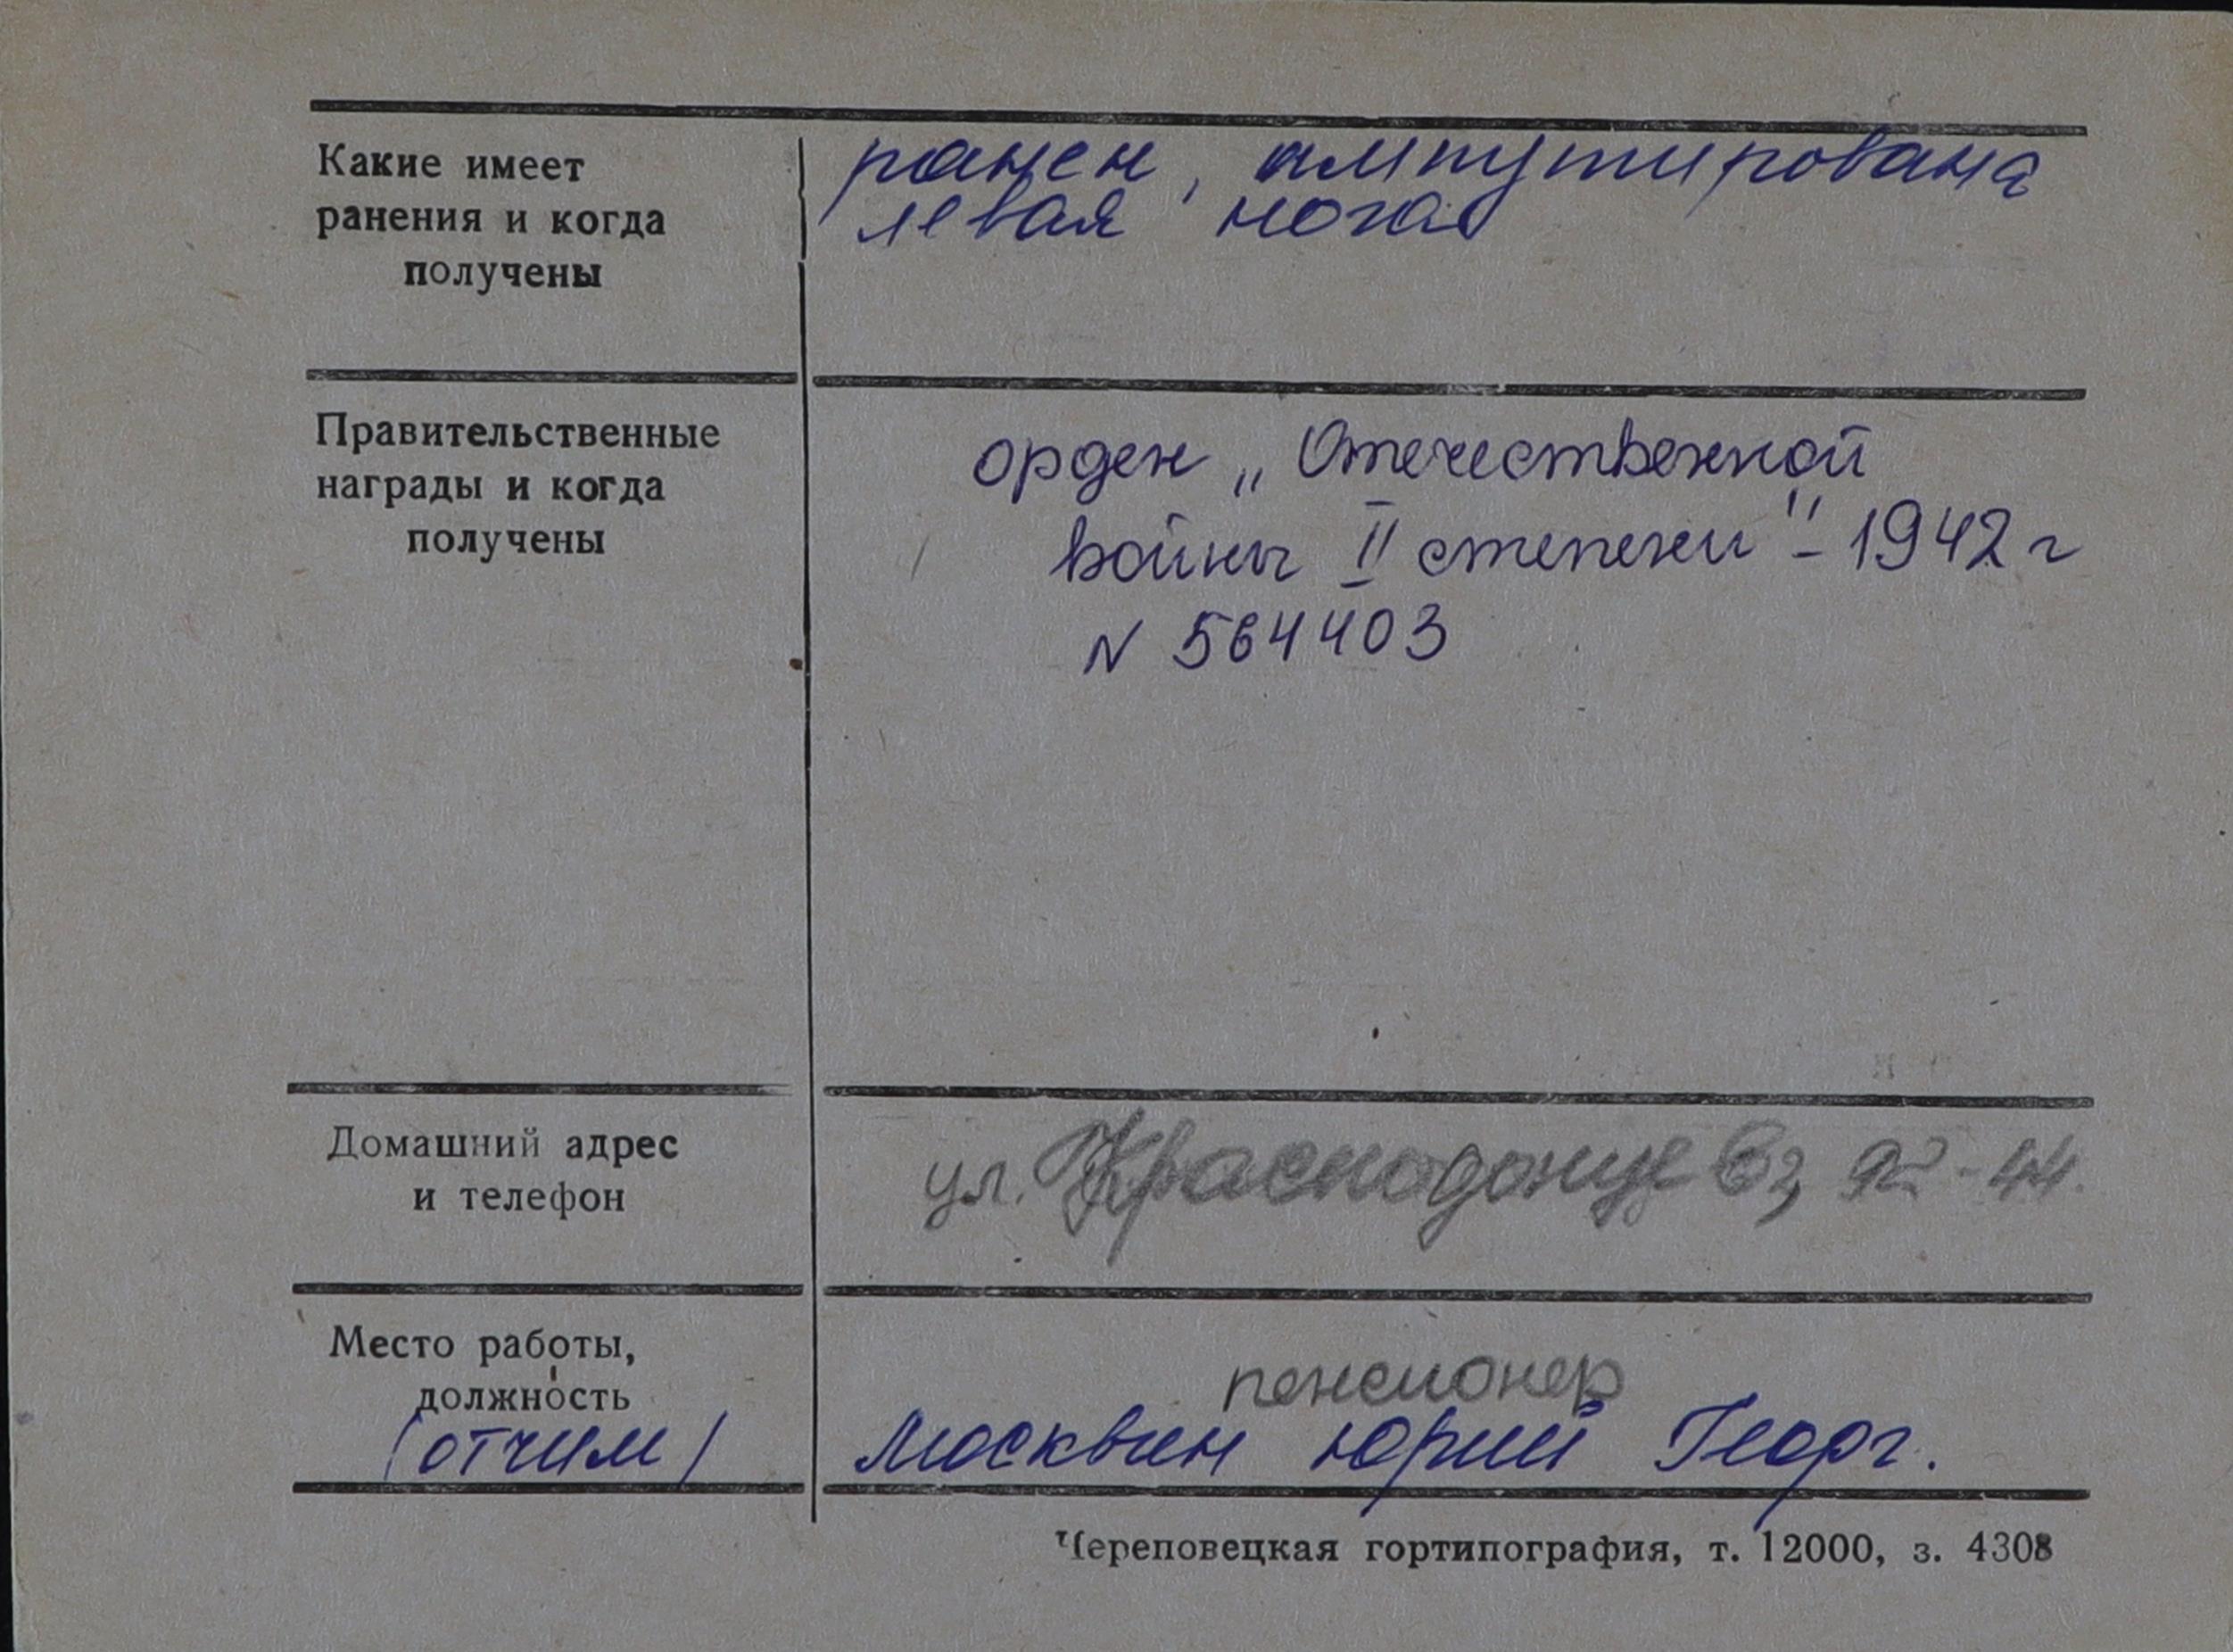 Какие имеет
ранения и когда
получены
ранен, ампутирована
левая нога
Правительственные
награды и когда
получены
орден „Отечественной
войны II степени" - 1942 г
N 564403
Домашний адрес
и телефон
ул. Краснодонцев, 92-44.
Место работы,
должность
(отчим)
пенсионер
Москвин Юрий Георг.
Череповецкая гортипография, т. 12000, з. 4308